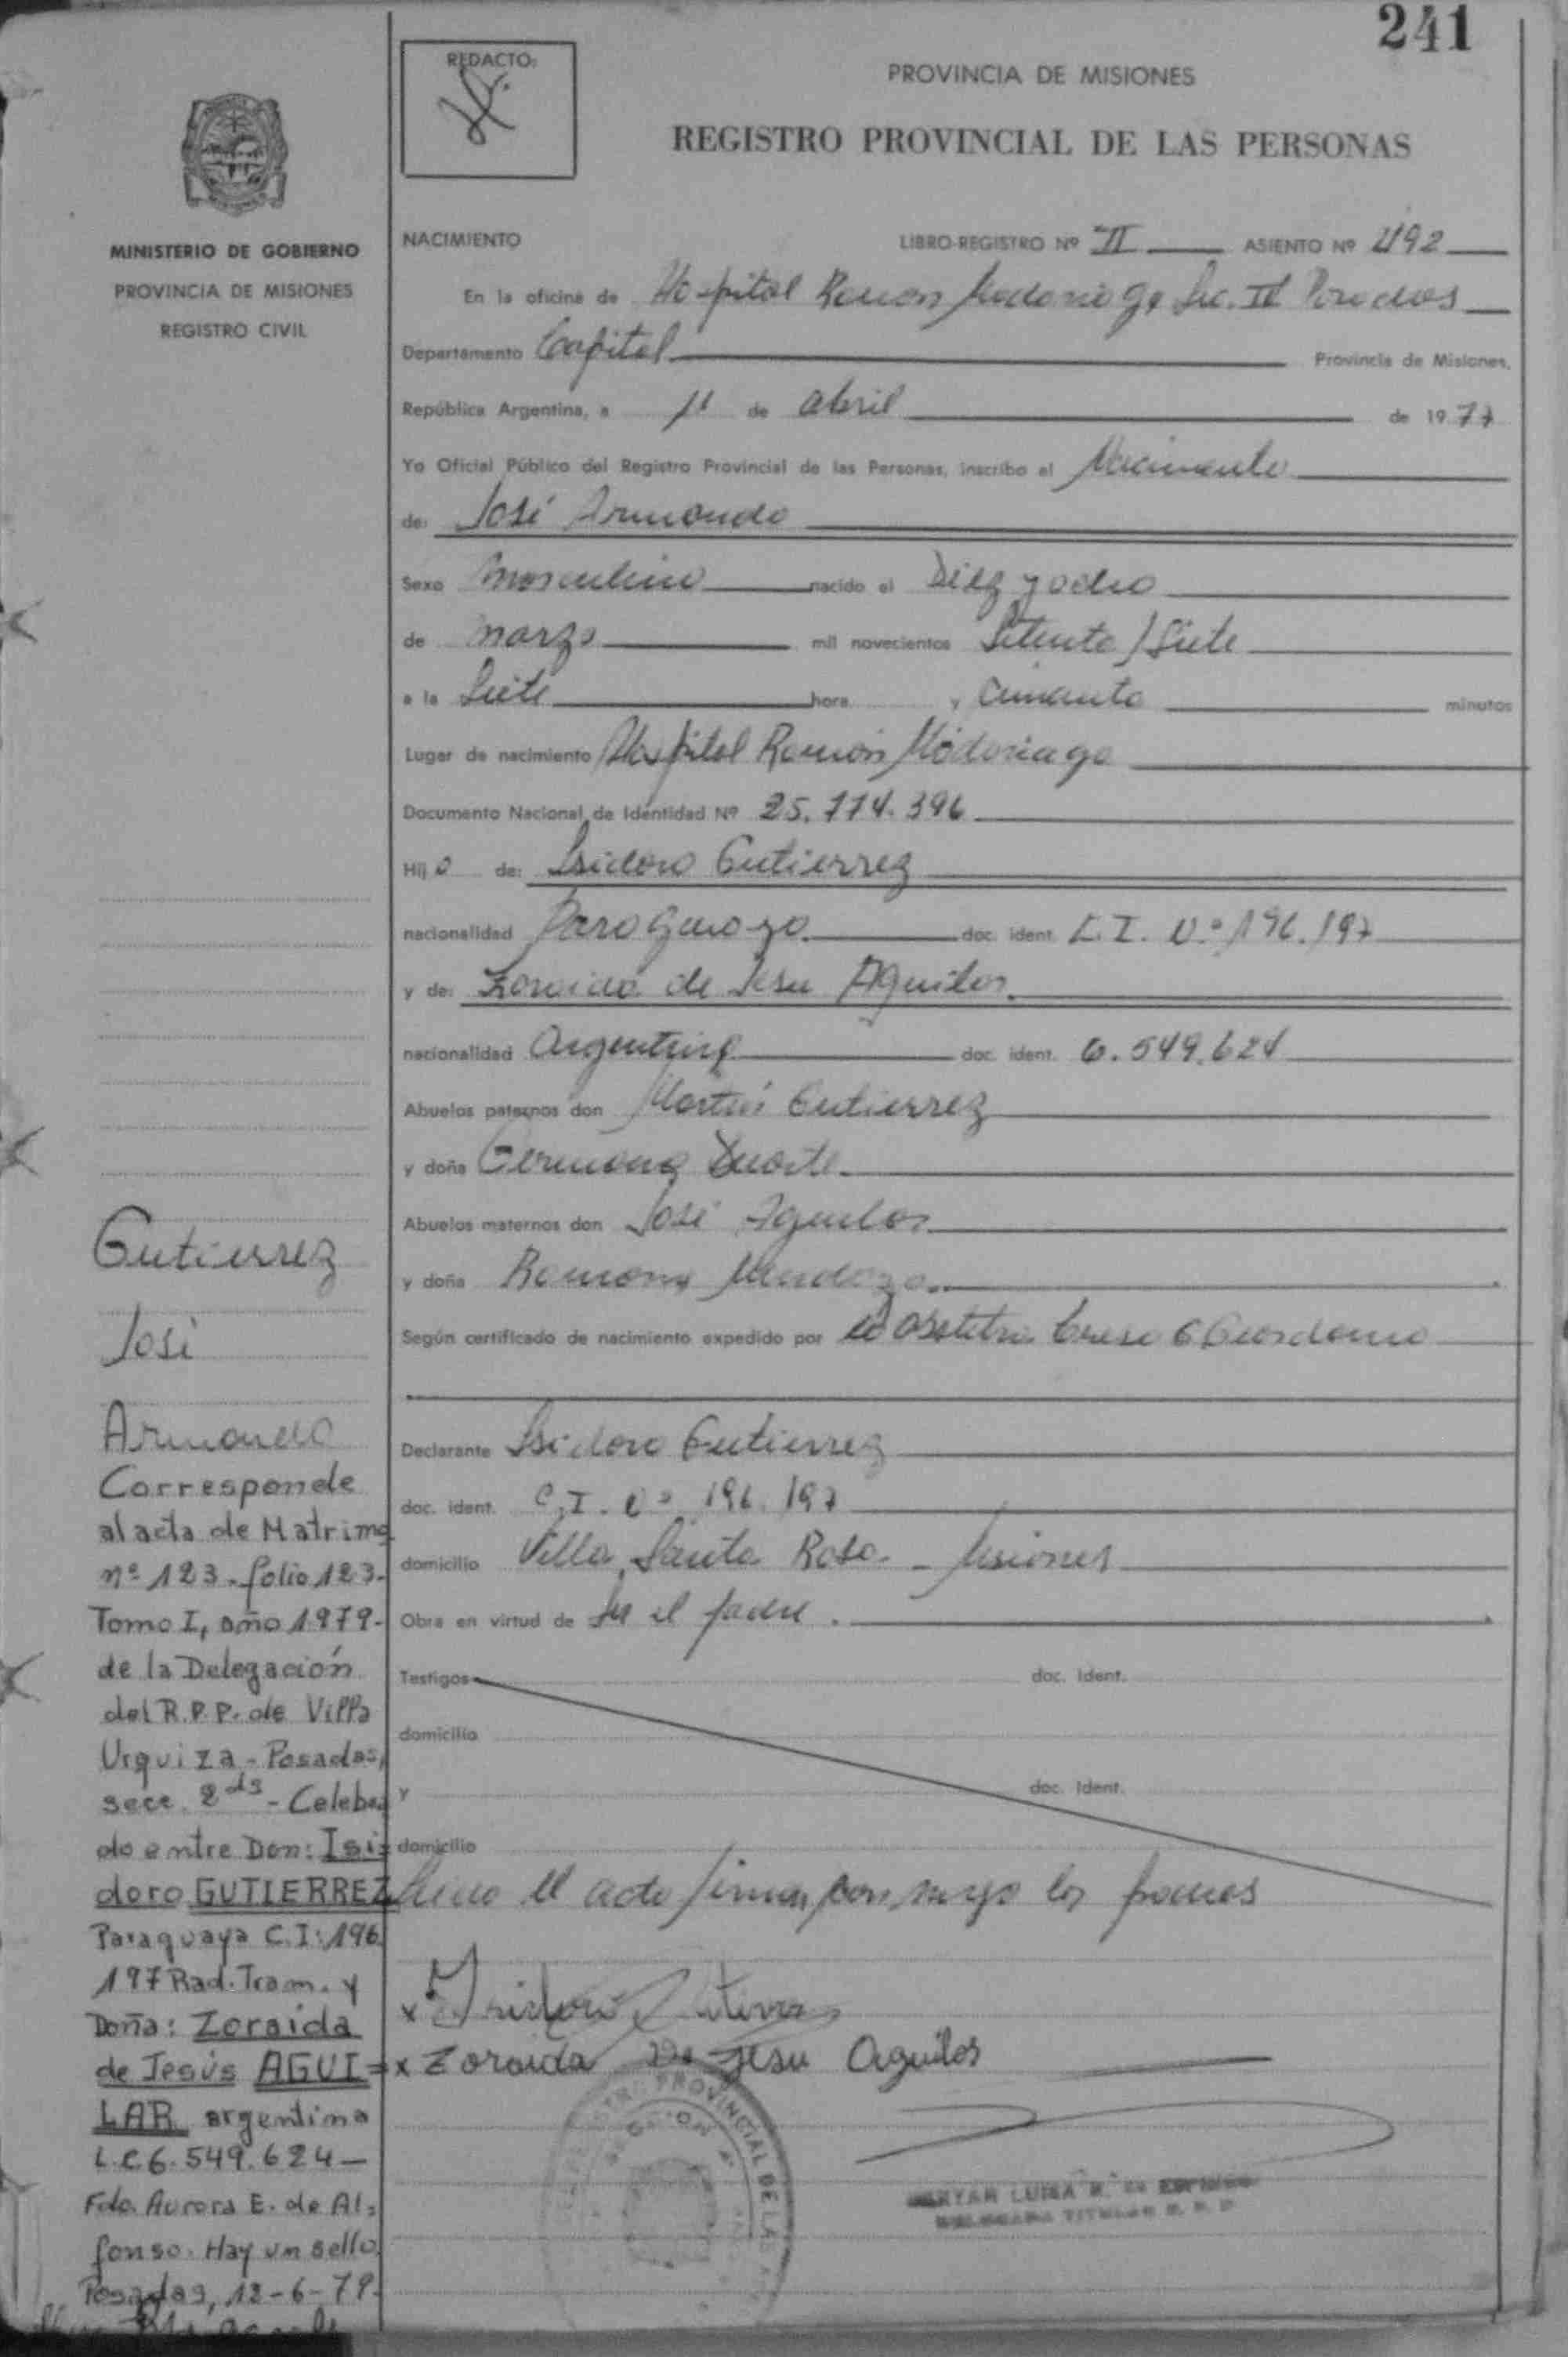 241
REDACTO:
PROVINCIA DE MISIONES
REGISTRO PROVINCIAL DE LAS PERSONAS
MINISTERIO DE GOBIERNO
PROVINCIA DE MISIONES
REGISTRO CIVIL
NACIMIENTO
LIBRO-REGISTRO Nº II ASIENTO Nº 492
En la oficina de Hospital Ramon Madariaga Sec. II Posadas
Departamento Capital Provincia de Misiones,
República Argentina, a de abril de 1977
Yo Oficial Público del Registro Provincial de las Personas, inscribo el Nacimiento
de: José Armando
Sexo masculino nacido el Diez y ocho
de marzo mil novecientos Setenta y Siete
a la Siete hora y cincuenta minutos
Lugar de nacimiento Hospital Ramón Madariaga
Documento Nacional de Identidad Nº 25.774.396
Hijo de: Isidoro Gutierrez
nacionalidad Paraguayo doc. ident. C.I. Nº 196.197
y de: Zoraida de Jesu Aguilar
nacionalidad Argentina doc. ident. 6.549.624
Abuelos paternos don Martín Gutierrez
y doña Germana Duarte
Abuelos maternos don José Aguilar
y doña Ramona Mendoza
Según certificado de nacimiento expedido por
Declarante Isidoro Gutierrez
doc. ident. C.I. Nº 196.197
domicilio Villa Santa Rosa - Misiones
Obra en virtud de Ser el padre.
Testigos doc. Ident.
domicilio
y doc. Ident.
domicilio
el acta firman conmigo los
x Isidoro Gutierrez
x Zoraida De Jesu Aguilar
Gutierrez
José
Armando
Corresponde
al acta de Matrimo
nº 123-folio 123-
Tomo I, año 1979-
de la Delegación
del R.P.P. de Villa
Urquiza - Posadas,
secc. 2da - Celebra
do entre Don: Isi=
doro GUTIERREZ
Paraguaya C.I: 196.
197 Rad. Tram. y
Doña: Zoraida
de Jesús AGUI=
LAR argentina
L.C 6.549.624 —
Fdo. Aurora E. de Al=
fonso. Hay un sello.
Posadas, 12-6-79.
REGISTRO PROVINCIAL DE LAS